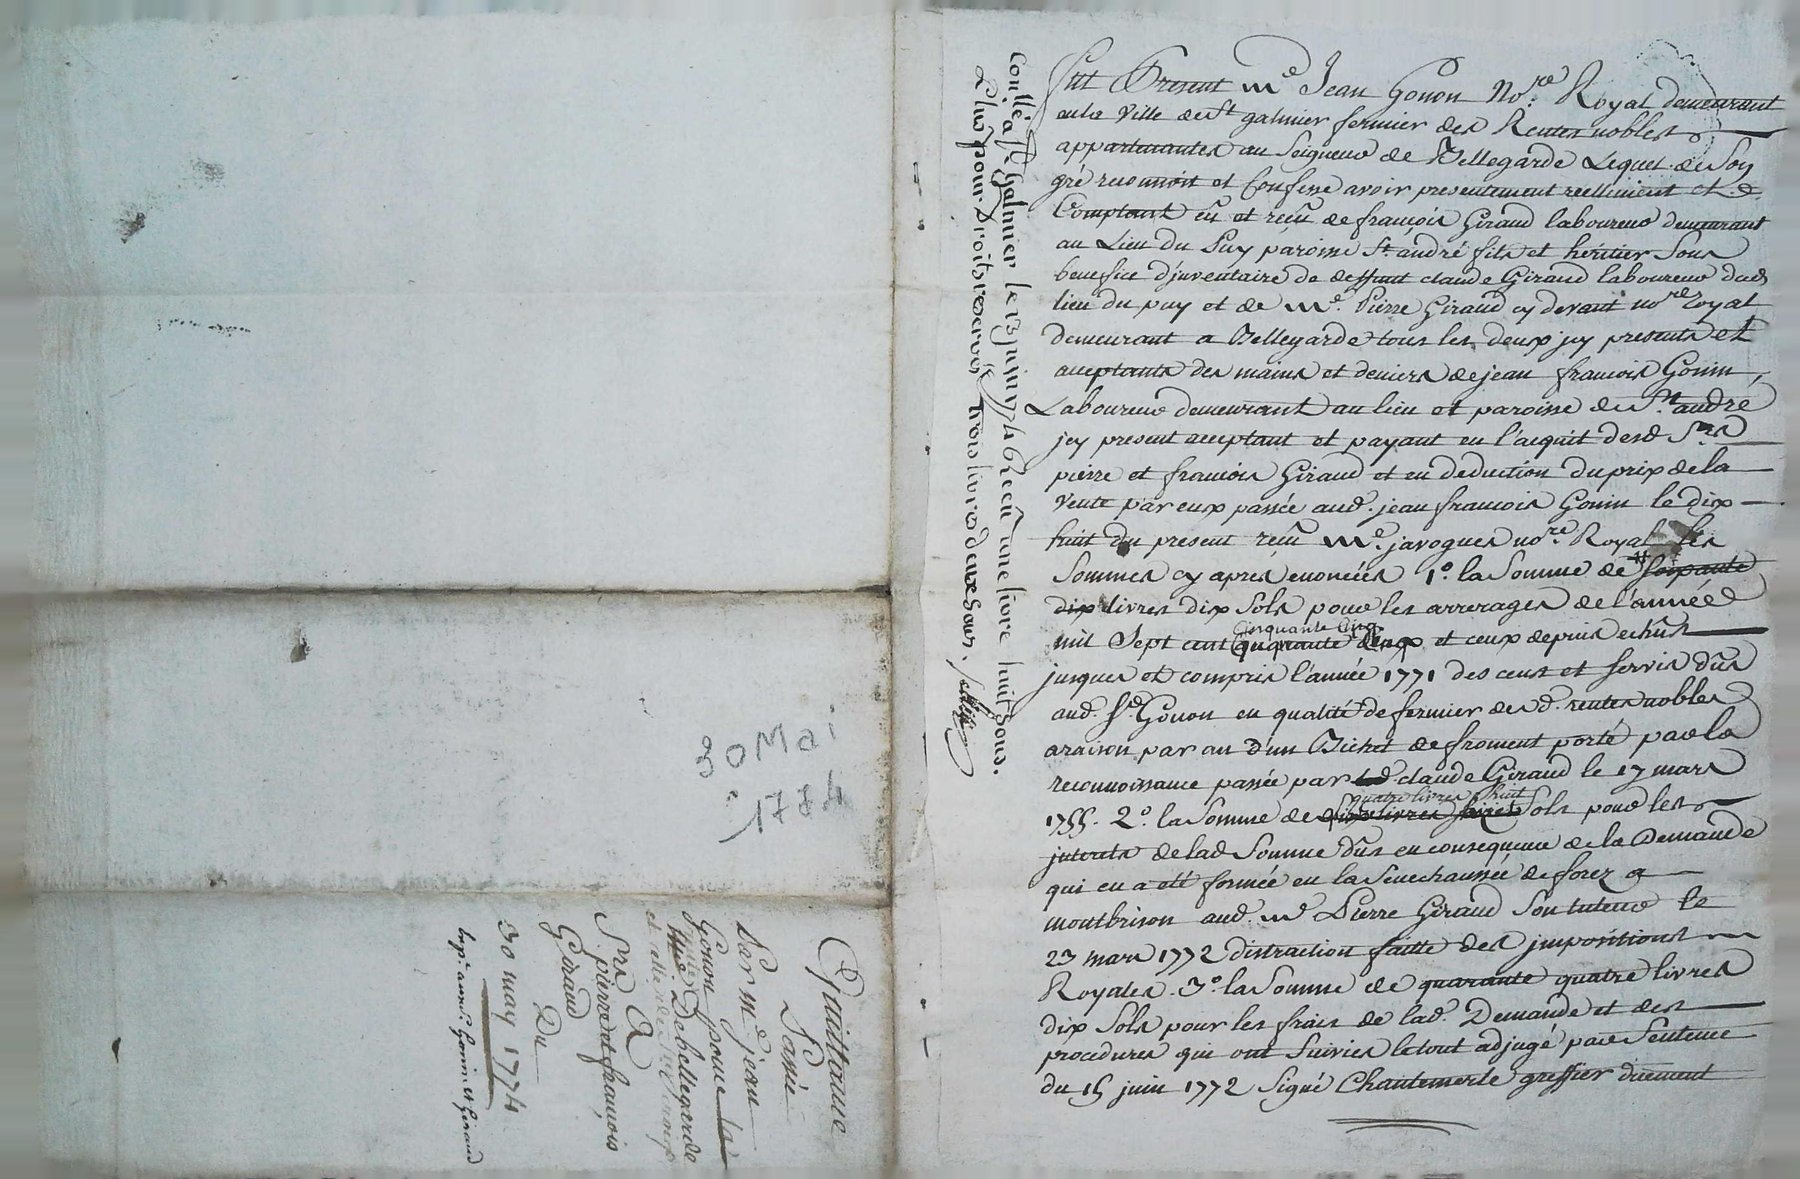 Fut Present me Jean Gonon No.re Royal demeurant
en la Ville de St galmier fermier des Rentes nobles
appartenantes au Seigneur de Bellegarde Lequel de Son
gré reconnoit et Confesse avoir presentement reellement et
Comptant eû et reçû de françois Giraud laboureur demeurant
au Lieu du Puy paroisse St. andré fils et héritier Sous
benefice d'jnventaire de deffunt claude Giraud laboureur dud
lieu du puy et de me. Pierre Giraud cy devant no.re royal
demeurant a Bellegarde tous les deux jcy presents et
acceptants des mains et deniers de jean francois Gonin
Laboureur demeurant au lieu et paroisse de St. andré
jcy present acceptant et payant en l'acquit desd Srs
pierre et francois Giraud et en deduction du prix de la
Vente par eux passée aud. jean francois Gonin le dix
huit du present reçu me. javogues no.re Royal les
Sommes cy apres enoncées 1º. la Somme de soixante
dix livres dix Sols pour les arrerages de l'année
cinquante cinq
mil Sept cent et ceux depuis echûs
jusques et compris l'année 1771 des cens et servis dûs
aud. Sr. Gonon en qualité de fermier desd. rentes nobles
a raison par an d'un Bichet de froment porté par la
reconnoissance passée par led claude Giraud le 17 mars
quatre livres huit
1755. 2º. la Somme de Sols pour les
jnterets de lad Somme dûs en consequence de la Demande
qui en a eté formée en la Senechaussée de forez a
montbrison aud. me Pierre Giraud Son tuteur le
23 mars 1772 distraction faitte des jmpositions
Royales. 3º. la Somme de quarante quatre livres
dix Sols pour les frais de lad. Demande et des
procedures qui ont Suivies le tout adjugé par Sentence
du 15 juin 1772 Signé Chantemerle greffier duement
Conllé a St Galmier le 13 juin 1774 Recû une livre huit sous.
Plus pour droits reservés trois livres deux sous.
30 Mai
1774
Quittance
Passée
Par me jean
Gonon pour
De bellegarde
A
Srs pierre et francois
Giraud
Du
30 may 1774